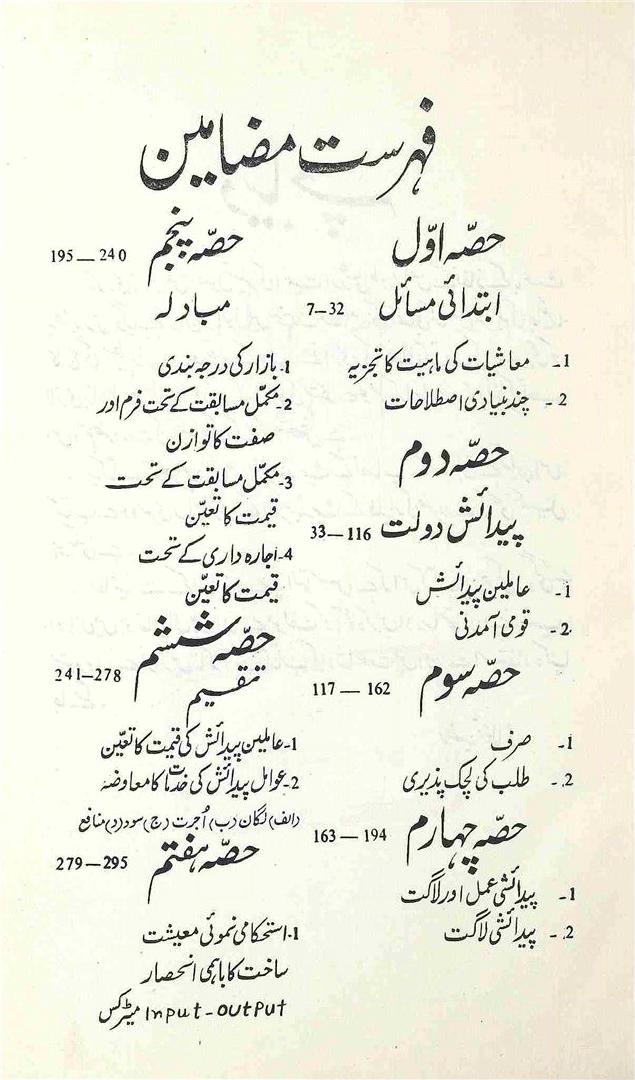 فہرست مضامین
حصّہ اوّل
ابتدائی مسائل 7–32
1- معاشیات کی ماہیت کا تجزیہ
2- چند بنیادی اصطلاحات
حصّہ دوم
پیدائش دولت 33–116
1- عاملین پیدائش
2- قومی آمدنی
حصّہ سوم 117–162
1- صرف
2- طلب کی لچک پذیری
حصّہ چہارم 163–194
1- پیدائشی عمل اور لاگت
2- پیدائشی لاگت
حصّہ پنجم 195–240
مبادلہ
1- بازار کی درجہ بندی
2- مکمّل مسابقت کے تحت فرم اور
صفت کا توازن
3- مکمّل مسابقت کے تحت
قیمت کا تعیّن
4- اجارہ داری کے تحت
قیمت کا تعیّن
حصّہ ششم
تقسیم 241–278
1- عاملین پیدائش کی قیمت کا تعیّن
2- عوامل پیدائش کی خدمات کا معاوضہ
(الف) لگان (ب) اُجرت (ج) سود (د) منافع
حصّہ ہفتم 279–295
1- استحکامی نموئی معیشت
ساخت کا باہمی انحصار
Input-output میٹرکس